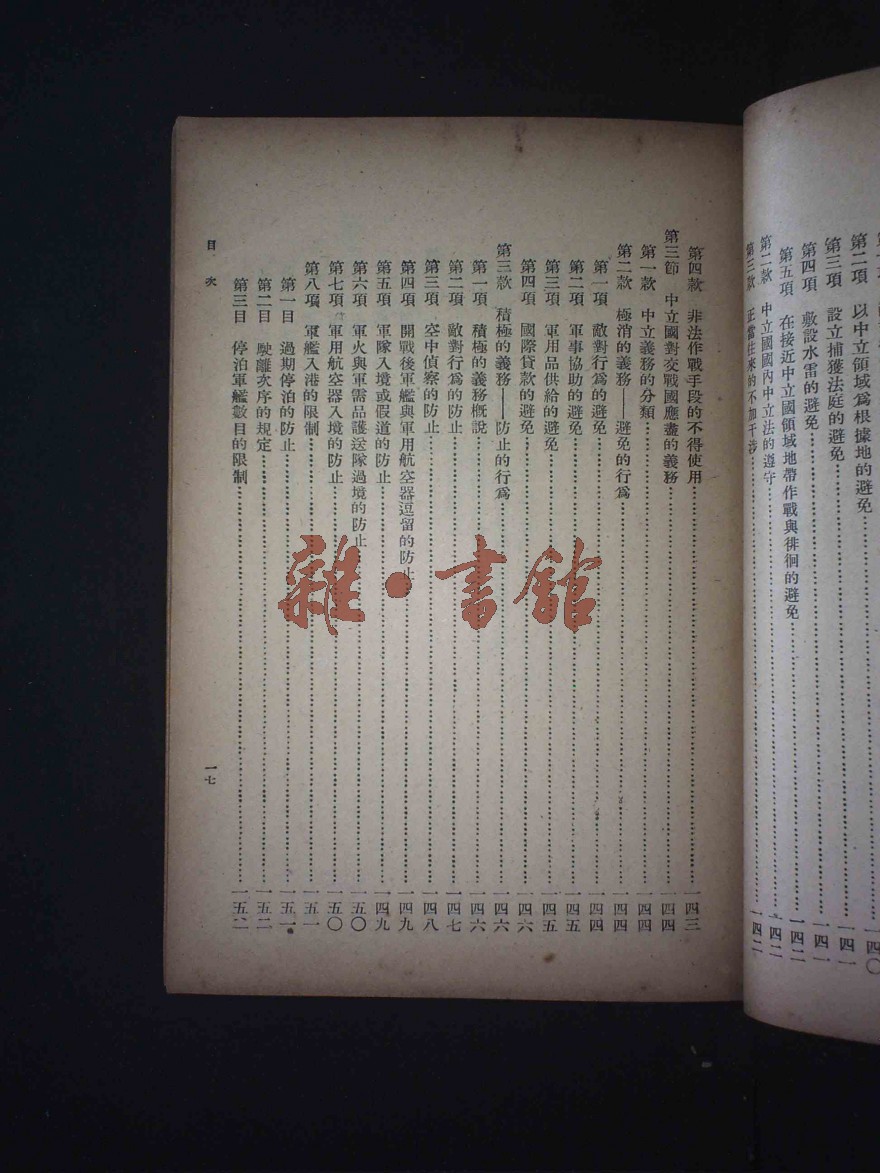 以中立領域爲根據地的避免……一四〇
第三項 設立捕獲法庭的避免……一四一
第四項 敷設水雷的避免……一四一
第五項 在接近中立國領域地帶作戰與徘徊的避免……一四二
第二款 中立國國內中立法的遵守……一四二
第三款 正當往來的不加干涉……一四二
第四款 非法作戰手段的不得使用……一四三
第三節 中立國對交戰國應盡的義務……一四四
第一款 中立義務的分類……一四四
第二款 極消的義務——避免的行爲……一四四
第一項 敵對行爲的避免……一四四
第二項 軍事協助的避免……一四五
第三項 軍用品供給的避免……一四五
第四項 國際貸款的避免……一四六
第三款 積極的義務——防止的行爲……一四六
第一項 積極的義務概說……一四六
第二項 敵對行爲的防止……一四七
第三項 空中偵察的防止……一四八
第四項 開戰後軍艦與軍用航空器逗留的防止……一四九
第五項 軍隊入境或假道的防止……一四九
第六項 軍火與軍需品護送隊過境的防止……一五〇
第七項 軍用航空器入境的防止……一五〇
第八項 軍艦入港的限制……一五一
第一目 過期停泊的防止……一五一
第二目 駛離次序的規定……一五二
第三目 停泊軍艦數目的限制……一五二
目次
一七
雜·書館